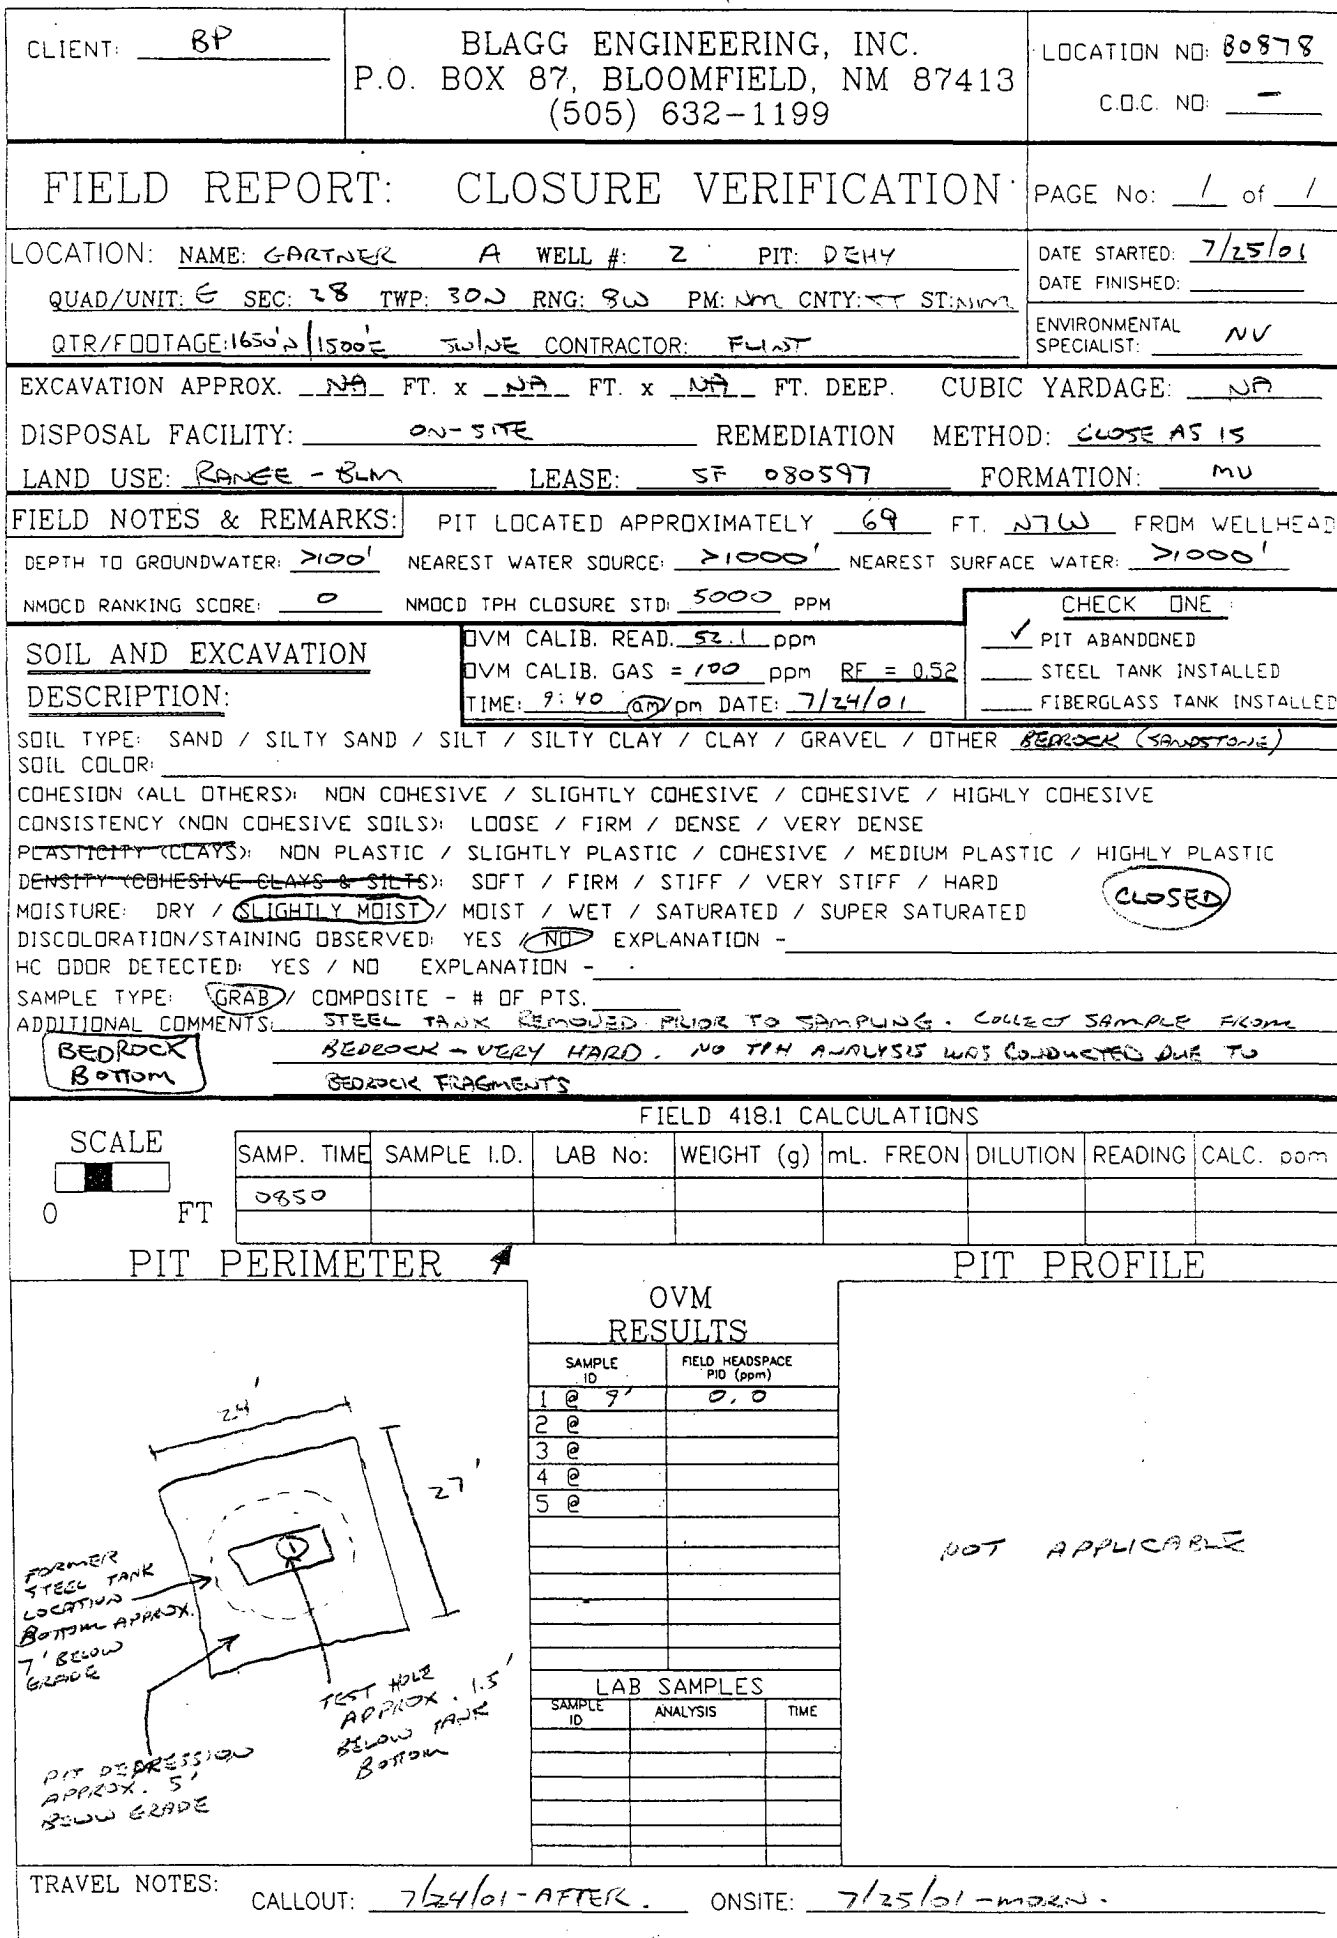 CLIENT: BP
BLAGG ENGINEERING, INC.
P.O. BOX 87, BLOOMFIELD, NM 87413
(505) 632-1199
LOCATION NO: B0878
C.O.C. NO: –
FIELD REPORT: CLOSURE VERIFICATION
PAGE No: 1 of 1
LOCATION: NAME: GARTNER A WELL #: 2 PIT: DEHY
QUAD/UNIT: G SEC: 28 TWP: 30N RNG: 8W PM: NM CNTY: ST ST: NM
QTR/FOOTAGE: 1650'N/1500'E SW/NE CONTRACTOR: FLINT
DATE STARTED: 7/25/01
DATE FINISHED:
ENVIRONMENTAL
SPECIALIST: NV
EXCAVATION APPROX. NA FT. x NA FT. x NA FT. DEEP. CUBIC YARDAGE: NA
DISPOSAL FACILITY: ON-SITE REMEDIATION METHOD: CLOSE AS IS
LAND USE: RANGE - BLM LEASE: SF 080597 FORMATION: MV
FIELD NOTES & REMARKS: PIT LOCATED APPROXIMATELY 69 FT. N7W FROM WELLHEAD
DEPTH TO GROUNDWATER: >100' NEAREST WATER SOURCE: >1000' NEAREST SURFACE WATER: >1000'
NMOCD RANKING SCORE: 0 NMOCD TPH CLOSURE STD: 5000 PPM
CHECK ONE :
✓ PIT ABANDONED
STEEL TANK INSTALLED
FIBERGLASS TANK INSTALLED
SOIL AND EXCAVATION
DESCRIPTION:
OVM CALIB. READ. 52.1 ppm
OVM CALIB. GAS = 100 ppm RF = 0.52
TIME: 9:40 am/pm DATE: 7/24/01
SOIL TYPE: SAND / SILTY SAND / SILT / SILTY CLAY / CLAY / GRAVEL / OTHER BEDROCK (SANDSTONE)
SOIL COLOR:
COHESION (ALL OTHERS): NON COHESIVE / SLIGHTLY COHESIVE / COHESIVE / HIGHLY COHESIVE
CONSISTENCY (NON COHESIVE SOILS): LOOSE / FIRM / DENSE / VERY DENSE
PLASTICITY (CLAYS): NON PLASTIC / SLIGHTLY PLASTIC / COHESIVE / MEDIUM PLASTIC / HIGHLY PLASTIC
DENSITY (COHESIVE CLAYS & SILTS): SOFT / FIRM / STIFF / VERY STIFF / HARD
CLOSED
MOISTURE: DRY / SLIGHTLY MOIST / MOIST / WET / SATURATED / SUPER SATURATED
DISCOLORATION/STAINING OBSERVED: YES / NO EXPLANATION -
HC ODOR DETECTED: YES / NO EXPLANATION -
SAMPLE TYPE: GRAB / COMPOSITE - # OF PTS.
ADDITIONAL COMMENTS: STEEL TANK REMOVED PRIOR TO SAMPLING. COLLECT SAMPLE FROM
BEDROCK - VERY HARD. NO TPH ANALYSIS WAS CONDUCTED DUE TO
BEDROCK FRAGMENTS
BEDROCK
BOTTOM
FIELD 418.1 CALCULATIONS
SCALE
0 FT
SAMP. TIME SAMPLE I.D. LAB No: WEIGHT (g) mL. FREON DILUTION READING CALC. ppm
0850
PIT PERIMETER
PIT PROFILE
OVM
RESULTS
SAMPLE ID FIELD HEADSPACE PID (ppm)
1 @ 9' 0.0
2 @
3 @
4 @
5 @
24'
27'
1
FORMER
STEEL TANK
LOCATION
BOTTOM APPROX.
7' BELOW
GRADE
TEST HOLE
APPROX. 1.5'
BELOW TANK
BOTTOM
PIT DEPRESSION
APPROX. 5'
BELOW GRADE
NOT APPLICABLE
LAB SAMPLES
SAMPLE ID ANALYSIS TIME
TRAVEL NOTES:
CALLOUT: 7/24/01 - AFTER. ONSITE: 7/25/01 - MORN.